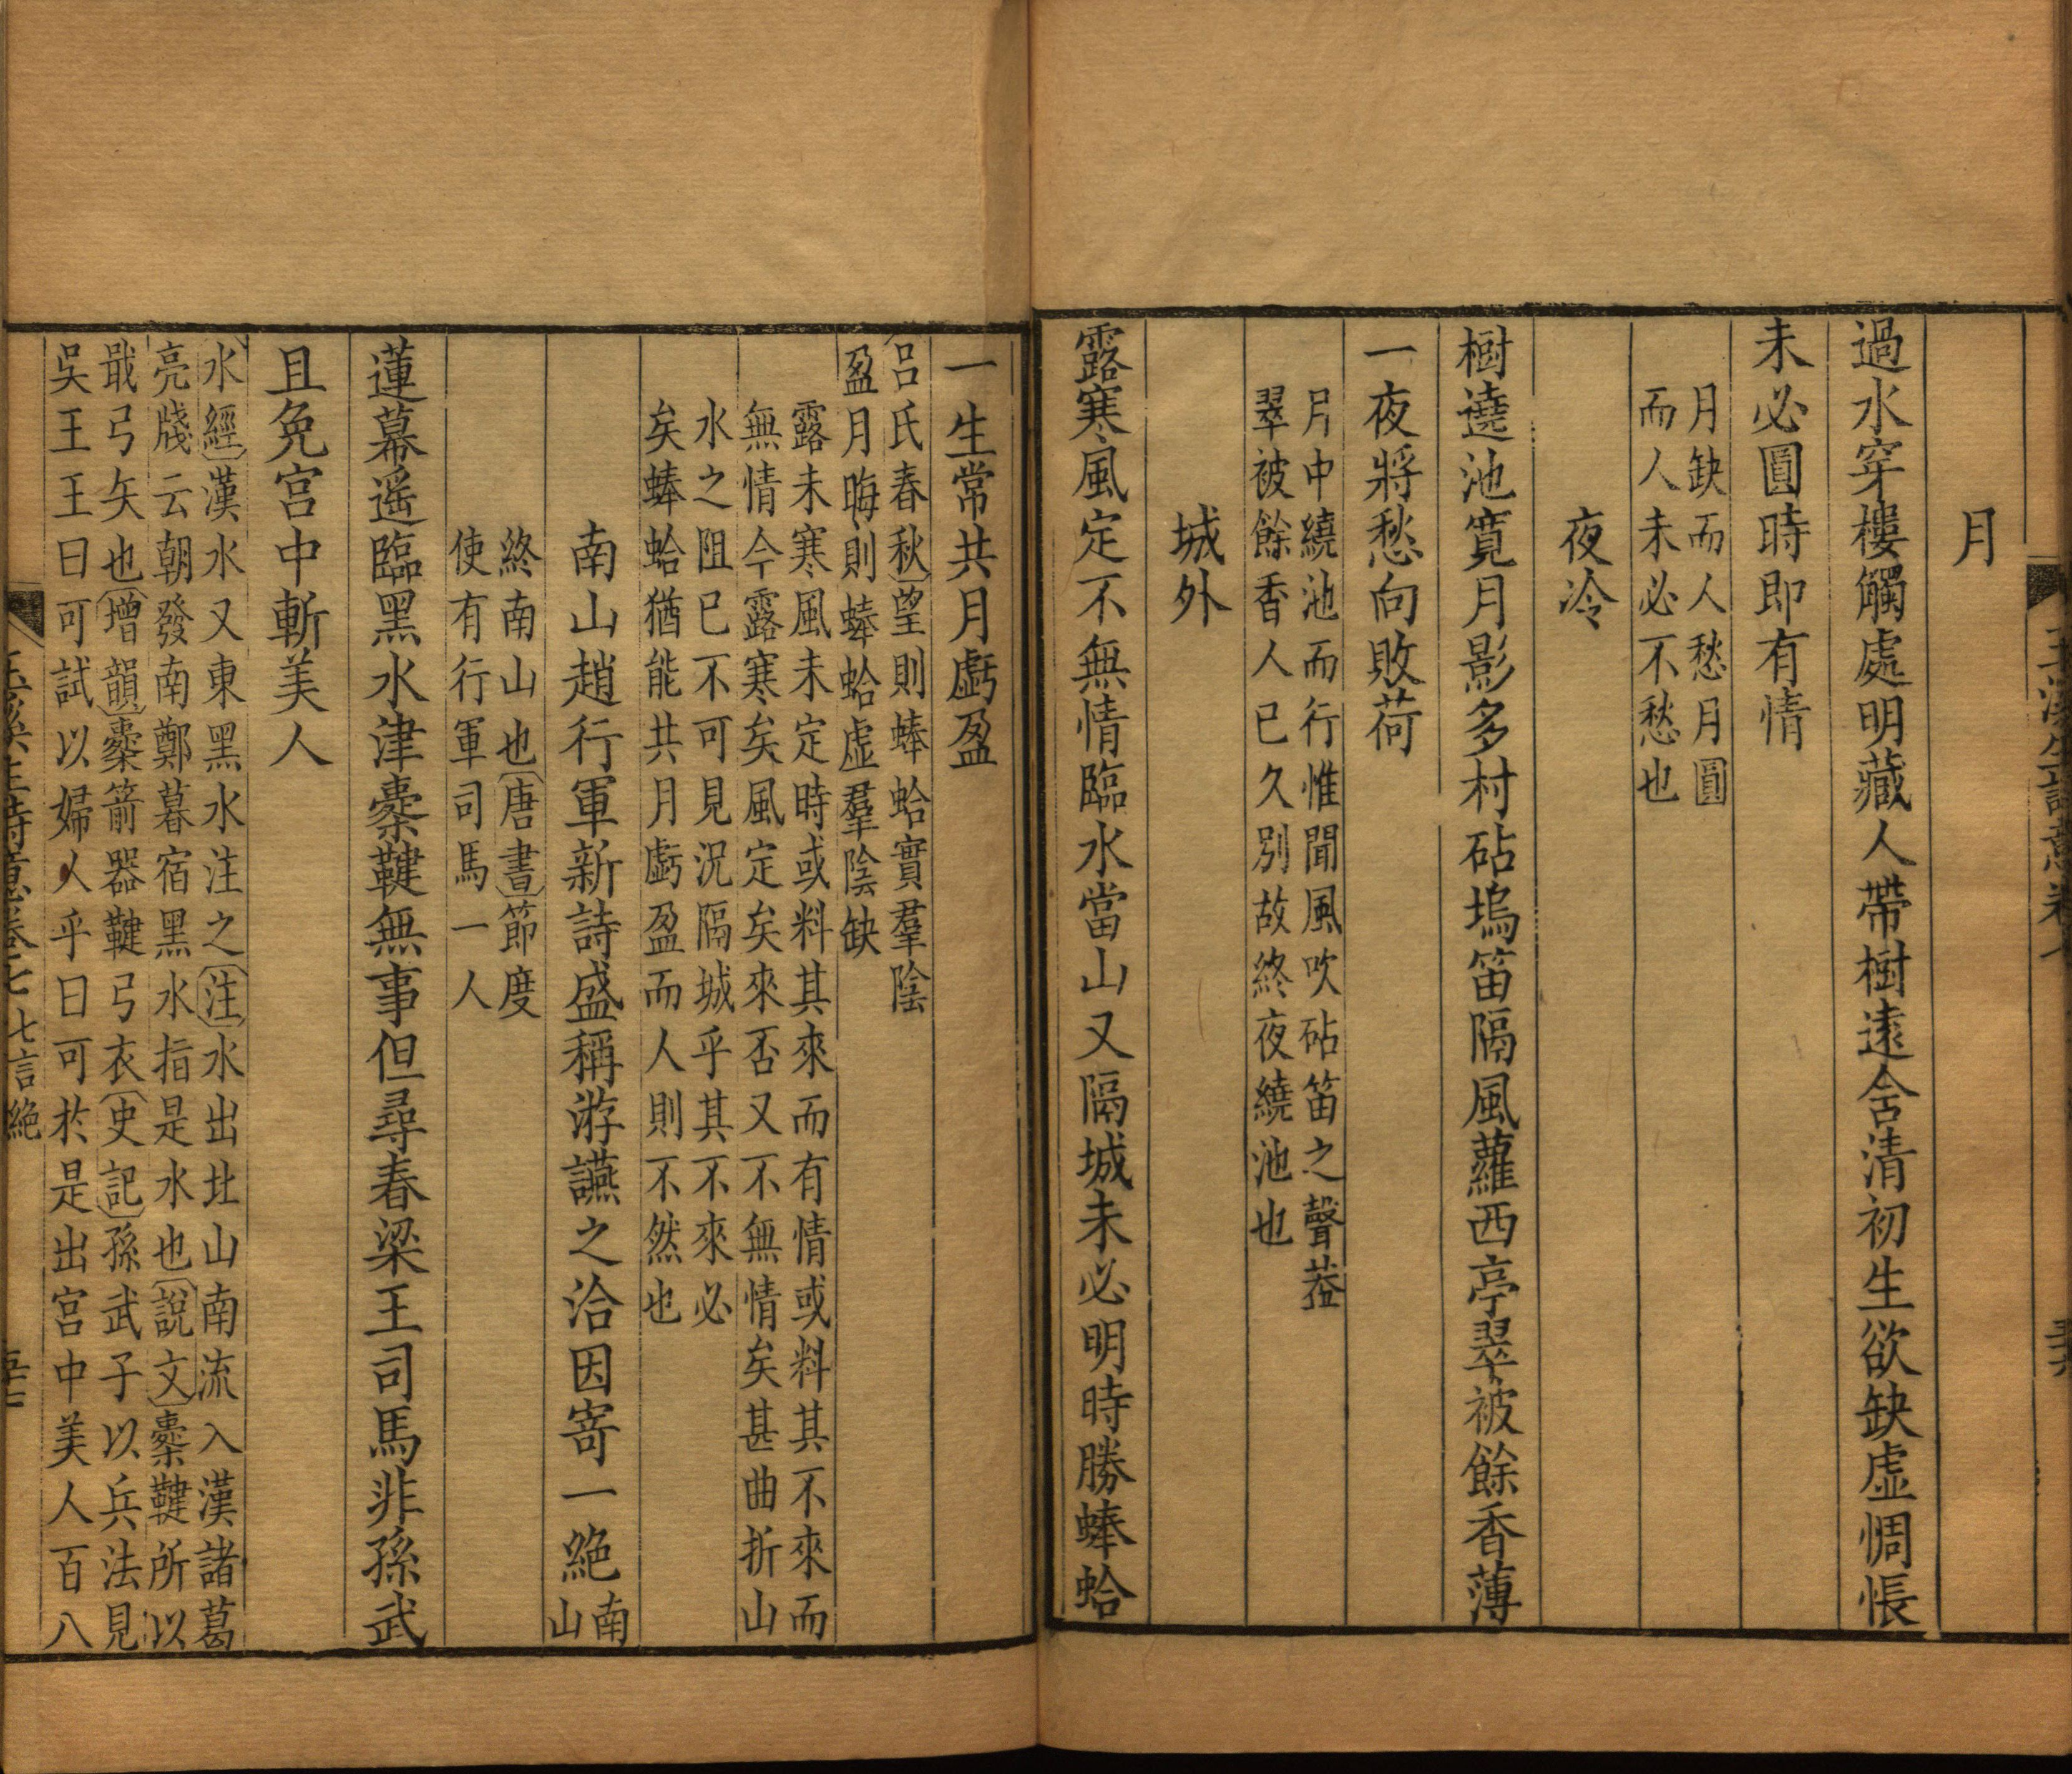 月
過水穿樓觸處明藏人帶樹遠含清初生欲缺虛惆悵
未必圓時即有情
月缺而人愁月圓
而人未必不愁也
夜冷
樹遶池寬月影多村砧塢笛隔風蘿西亭翠被餘香薄
一夜將愁向敗荷
月中繞池而行惟聞風吹砧笛之聲葢
翠被餘香人已久別故終夜繞池也
城外
露寒風定不無情臨水當山又隔城未必明時勝蜯蛤
一生常共月虧盈
呂氏春秋望則蜯蛤實羣陰
盈月晦則蜯蛤虛羣陰缺
露未寒風未定時或料其來而有情或料其不來而
無情今露寒矣風定矣來否又不無情矣甚曲折山
水之阻已不可見況隔城乎其不來必
矣蜯蛤猶能共月虧盈而人則不然也
南山趙行軍新詩盛稱游讌之洽因寄一絕南
山
終南山也唐書節度
使有行軍司馬一人
蓮幕遥臨黑水津櫜鞬無事但尋春梁王司馬非孫武
且免宮中斬美人
水經漢水又東黑水注之注水出北山南流入漢諸葛
亮牋云朝發南鄭暮宿黑水指是水也說文櫜鞬所以
戢弓矢也增韻櫜箭器鞬弓衣史記孫武子以兵法見
吳王王曰可試以婦人乎曰可於是出宮中美人百八
七言絕